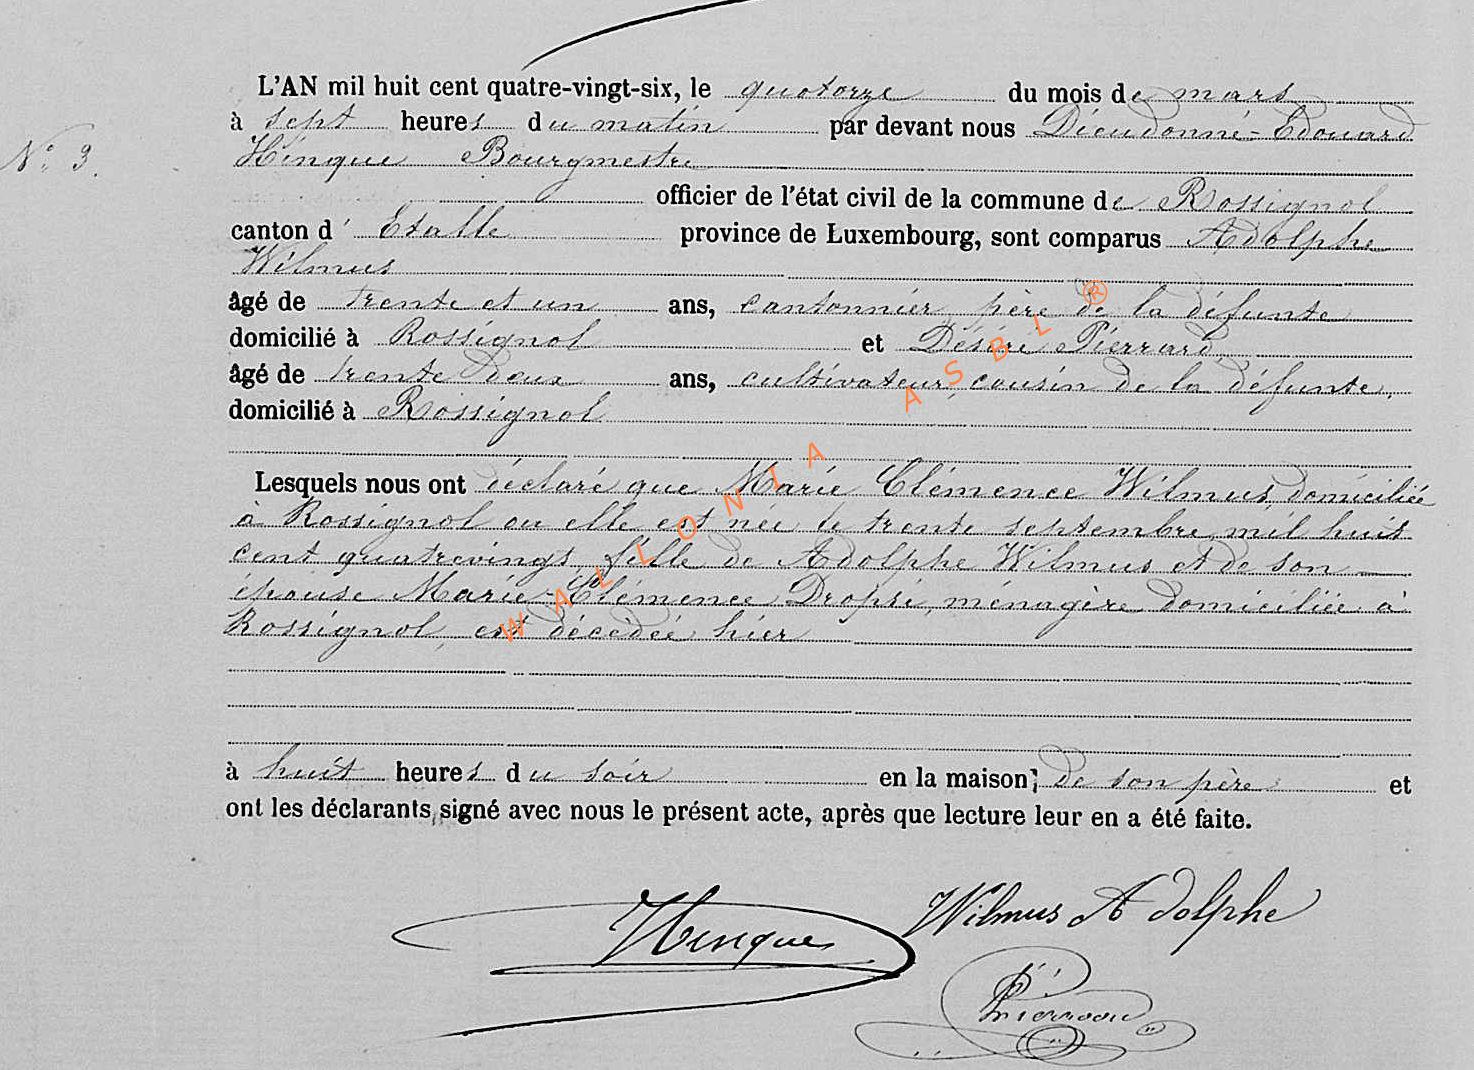 L'AN mil huit cent quatre-vingt-six, le quatorze du mois de mars
à sept heures du matin par devant nous Dieudonné-Edouard
N° 3.
Hinque Bourgmestre
officier de l'état civil de la commune de Rossignol
canton d'Etalle province de Luxembourg, sont comparus Adolphe
Wilmus
âgé de trente et un ans, cantonnier, père de la défunte
domicilié à Rossignol et Désiré Pierrard,
âgé de trente deux ans, cultivateur, cousin de la défunte,
domicilié à Rossignol
Lesquels nous ont déclaré que Marie Clémence Wilmus, domiciliée
à Rossignol ou elle est née le trente septembre mil huit
cent quatrevingt, fille de Adolphe Wilmus et de son
épouse Marie-Clémence Dropsi, ménagère domiciliée à
Rossignol, est décédée hier
à huit heures du soir en la maison, de son père et
ont les déclarants, signé avec nous le présent acte, après que lecture leur en a été faite.
Hinque Wilmus Adolphe
WALLONIA ASBL ®